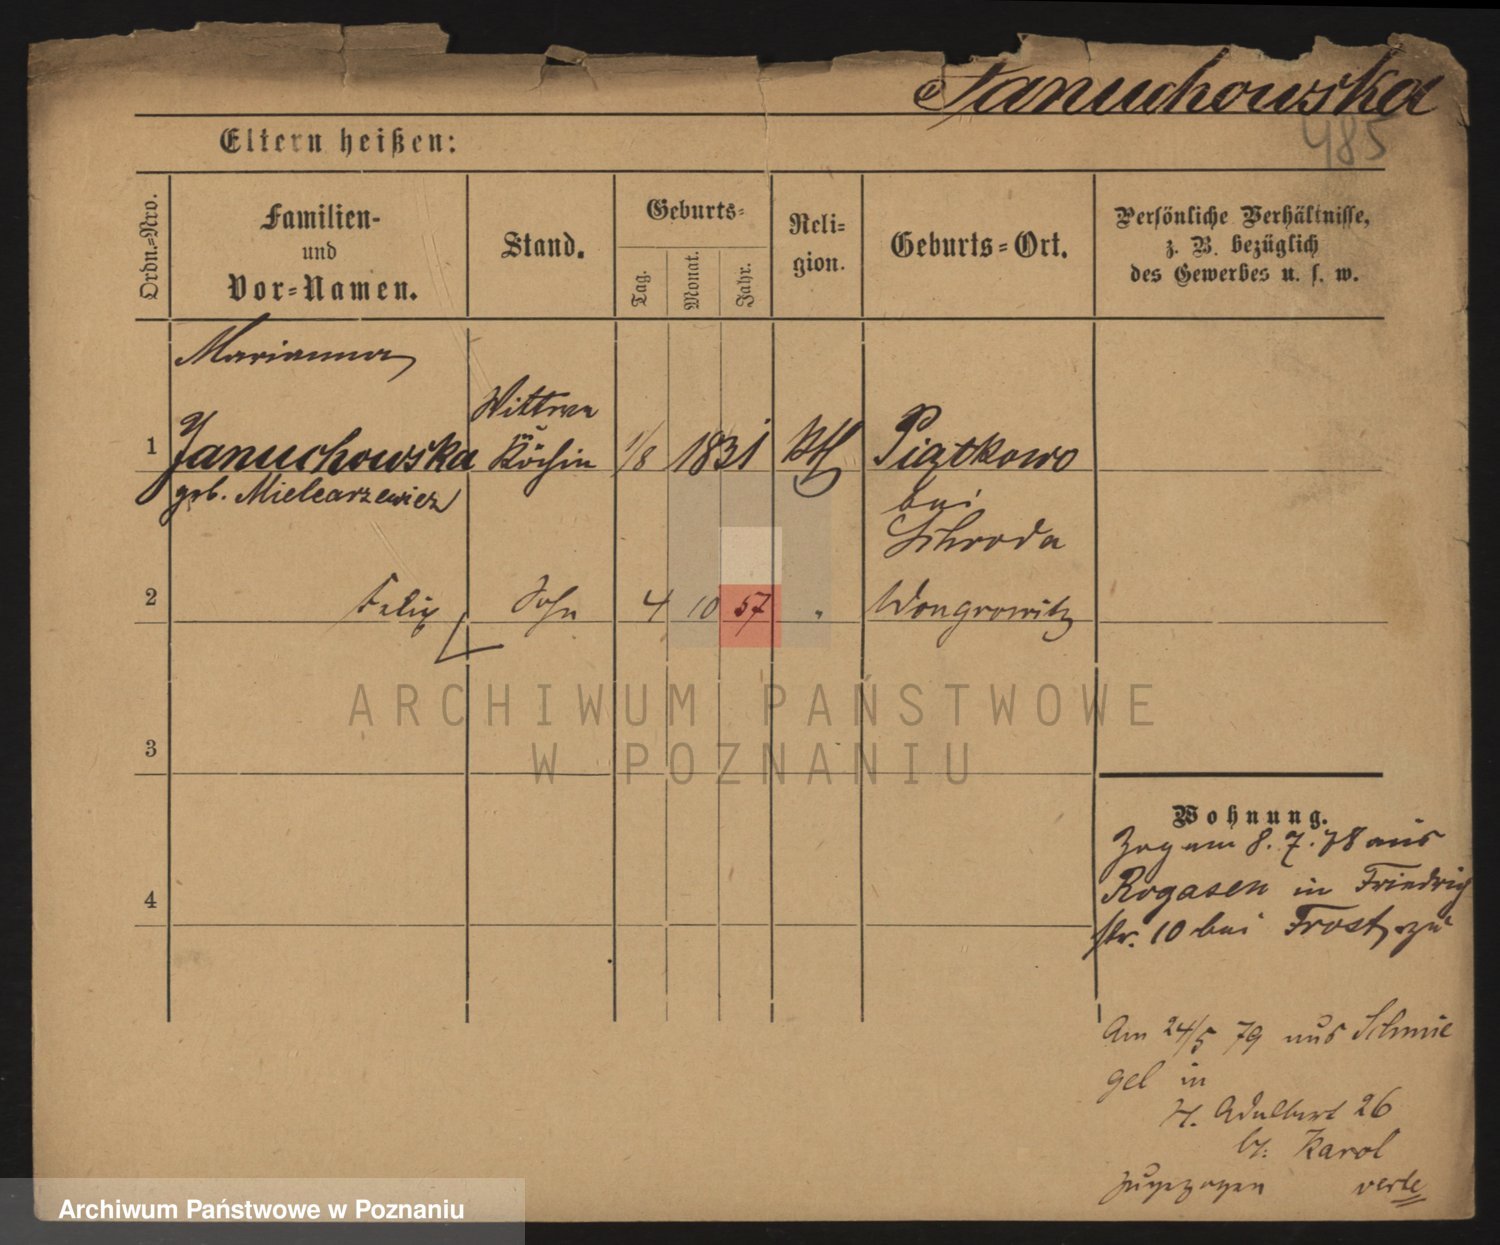 Januchowska
485
Eltern heißen:
Ordn.-Nro.
Familien-
und
Vor-Namen.
Stand.
Geburts-
Tag.
Monat.
Jahr.
Reli-
gion.
Geburts-Ort.
Persönliche Verhältnisse,
z. B. bezüglich
des Gewerbes u. s. w.
Marianna
1 Januchowska Wittwe Köchin 1/8 1831 Kth Piątkowo
geb. Mielcarzewicz bei
Schroda
2 Felix Sohn 4 10 57 " Wongrowitz
3
4
Wohnung.
Zog am 8. 7. 78 aus
Rogasen in Friedrich
str. 10 bei Frost zu
Am 24/5 79 aus Schmie
gel in
St. Adalbert 26
b. Karol
zugezogen verte
ARCHIWUM PAŃSTWOWE
W POZNANIU
Archiwum Państwowe w Poznaniu